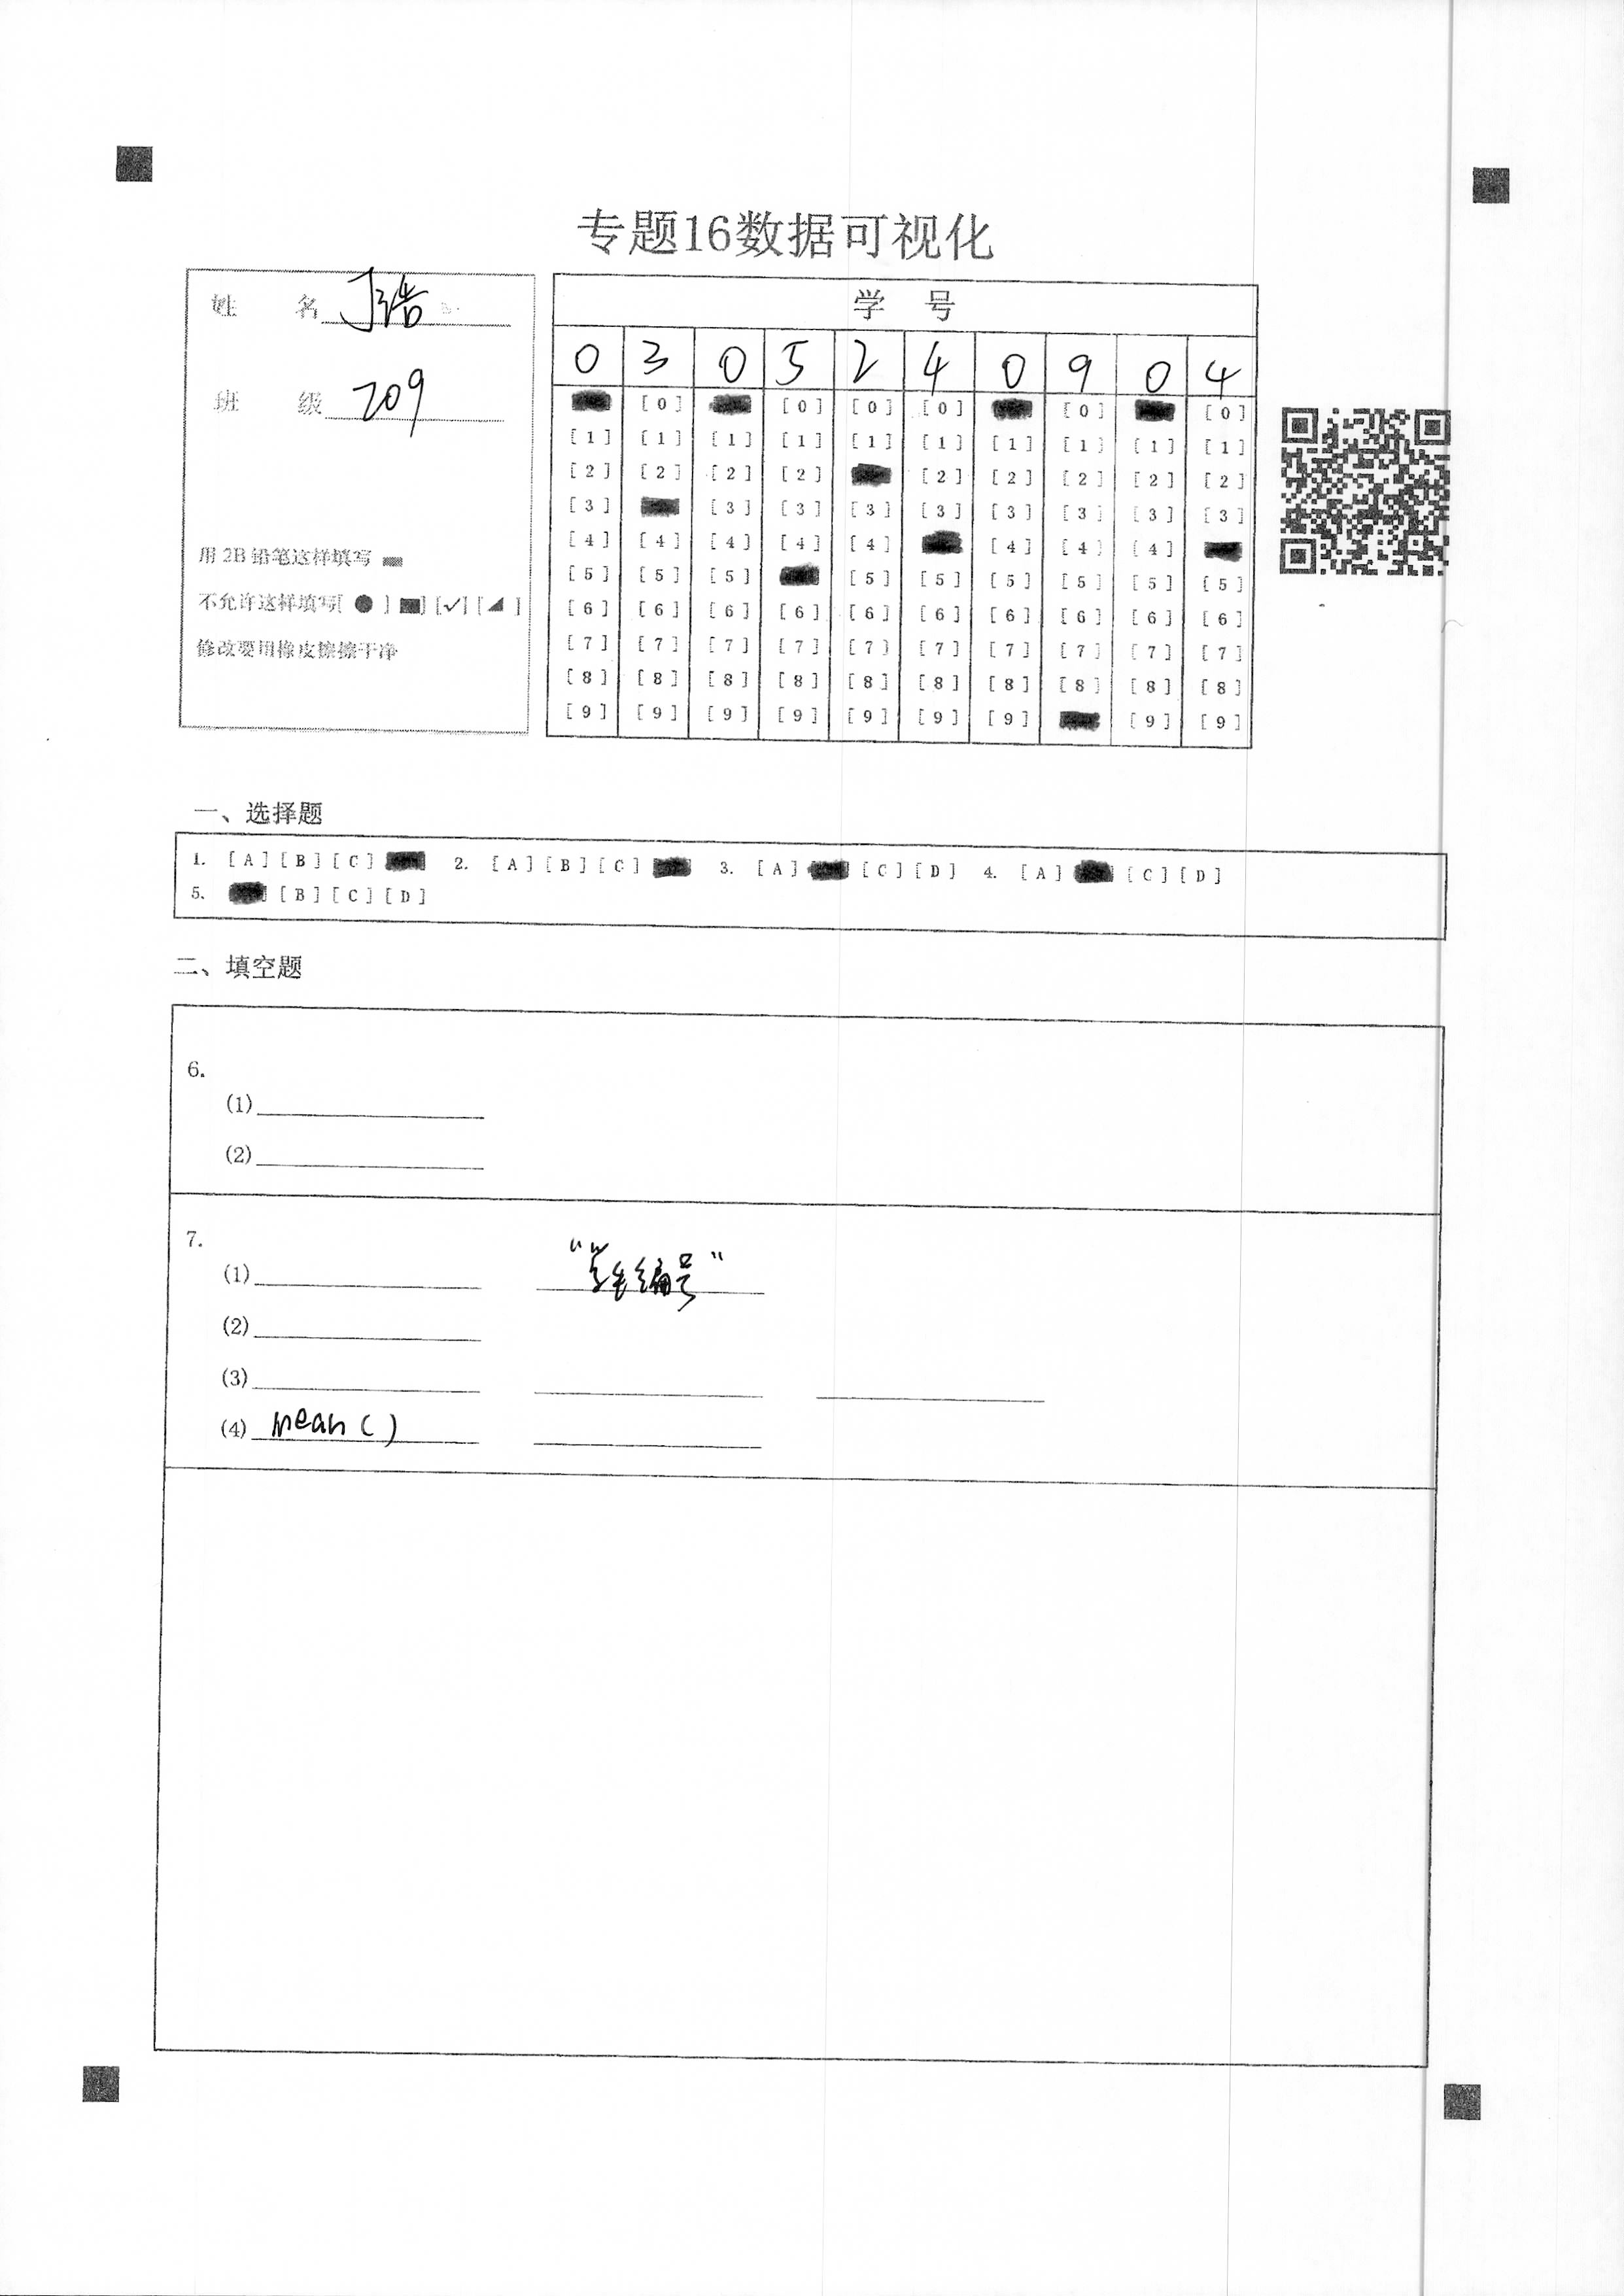 专题16数据可视化
姓 名 丁浩
班 级 209
用 2B 铅笔这样填写
不允许这样填写[ ● ] [■] [✓] [◢ ]
修改要用橡皮擦擦干净
学 号
0 3 0 5 2 4 0 9 0 4
[0] [0] [0] [0] [0] [0]
[1] [1] [1] [1] [1] [1] [1] [1] [1] [1]
[2] [2] [2] [2] [2] [2] [2] [2] [2]
[3] [3] [3] [3] [3] [3] [3] [3] [3]
[4] [4] [4] [4] [4] [4] [4] [4]
[5] [5] [5] [5] [5] [5] [5] [5] [5]
[6] [6] [6] [6] [6] [6] [6] [6] [6] [6]
[7] [7] [7] [7] [7] [7] [7] [7] [7] [7]
[8] [8] [8] [8] [8] [8] [8] [8] [8] [8]
[9] [9] [9] [9] [9] [9] [9] [9] [9]
一、选择题
1. [A] [B] [C] 2. [A] [B] [C] 3. [A] [C] [D] 4. [A] [C] [D]
5. [B] [C] [D]
二、填空题
6.
(1)
(2)
7.
(1) "学生编号"
(2)
(3)
(4) mean()